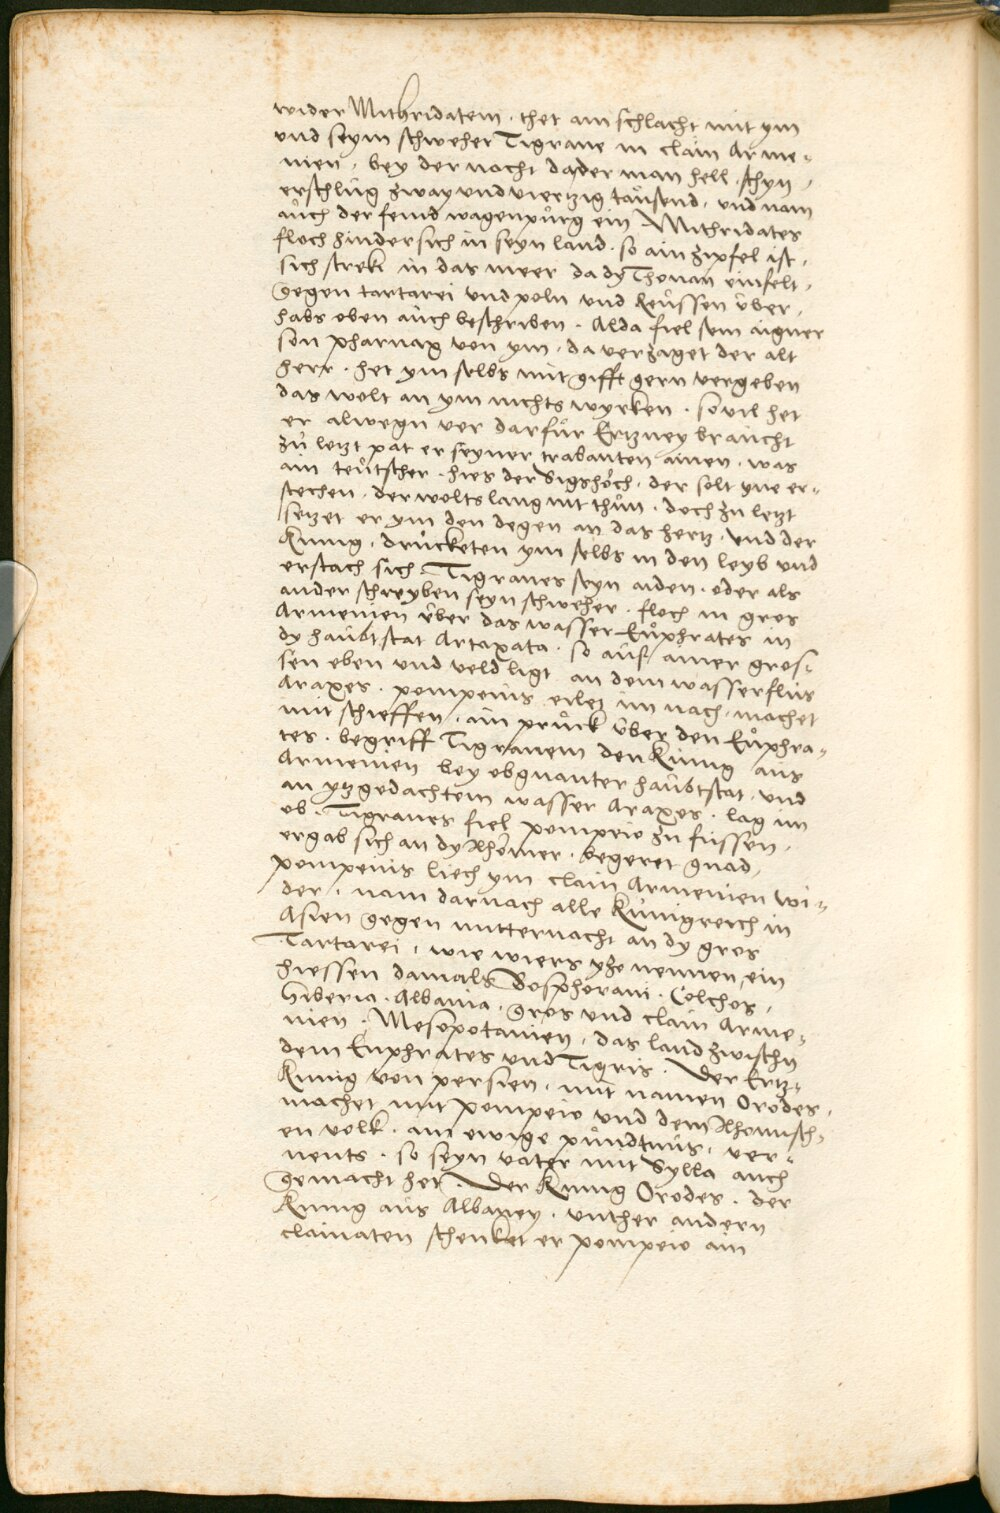 wider Mithridatem . thet ain schlacht mit ym
und seym schweher Tigrane in clain Arme-
nien , bey der nacht da der man hell schyn ,
erschlůg zway und viertzig taůsend , und nam
aůch der feind wagenpůrg ein Mithridates
floch hinder sich in seyn land . so ain zipfel ist ,
sich strekt in das meer da dy Thonau einfelt ,
gegen tartarei und poln und Reůssen ůber ,
habs oben aůch beschriben . Alda fiel sein aigner
son pharnax von ym , da verzaget der alt
herr . het ym selbs mit gifft gern vergeben
das wolt an ym nichts wyrken . sovil het
er alwegn ver darfůr Ertzney braucht
zů letzt pat er seyner trabanten ainen . was
ain teůtscher . hies der Sigshöch . der solt yne er-
stechen . der wolts lang nit thůn . doch zu letzt
setzet er ym den degen an das hertz . und der
Kunig , drůcketen ym selbs in den leyb und
erstach sich . Tigranes seyn aiden . oder als
ander schreyben seyn schweher . floch in gros
Armenien ůber das wasser Eůphrates in
dy haůbtstat Artaxata . so aůf ainer gros-
sen eben und veld ligt an dem wasserflůs
Araxes . pompeius eilet im nach , machet
mit schieffen . ain průck ůber den Eůphra-
tes . begriff Tigranem den Kůnig aus
Armenien bey obgnanter haůbtstat . und
an ytzgedachtem wasser Araxes . lag im
ob . Tigranes fiel pompeio zu fůssen .
ergab sich an dy Rhömer . begeret gnad ,
pompeius liech ym clain Armenien wi-
der , nam darnach alle Kůnigreich in
Asien gegen mitternacht an dy gros
Tartarei , wie wiers yze nennen , ein
hiessen damals Bosphorani . Colchos ,
Hiberia . Albania , gros und clain Arme-
nien . Mesopotamien , das land zwischn
dem Euphrates und Tigris . Der Ertz-
Kunig von persien . mit namen Orodes ,
machet mit pompeio und dem Rhomisch-
en volk . ain ewige půndtnůs , ver-
nents . so seyn vater mit Sylla auch
gemacht het . Der Kunig Orodes . der
Kunig aůs Albaney . unther andern
clainaten schenket er pompeio ain